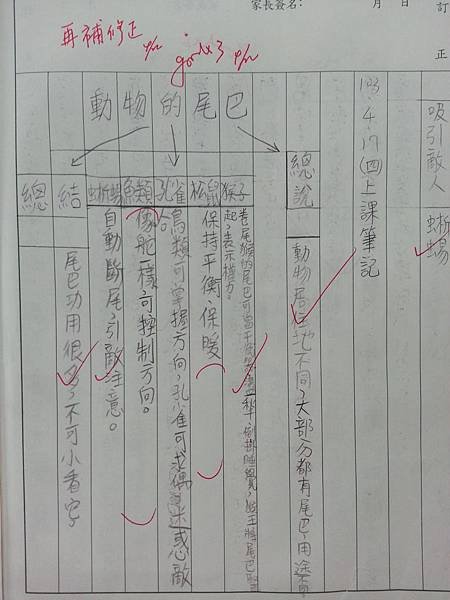 家長簽名: 月 日
訂正
再補修正
goodx3
吸引敵人 蜥蜴
103.4.17(四)上課筆記
動物的尾巴
總說 動物居住地不同,大部分都有尾巴,用途
猴子 卷尾猴的尾巴可當 倒掛睡覺,猴王將尾巴豎
起,表示權力。
松鼠 保持平衡、保暖
孔雀 鳥類可掌握方向,孔雀可求偶、迷惑敵
魚類 像舵一樣,可控制方向。
蜥蜴 自動斷尾,引敵注意。
總結 尾巴功用很多,不可小看它